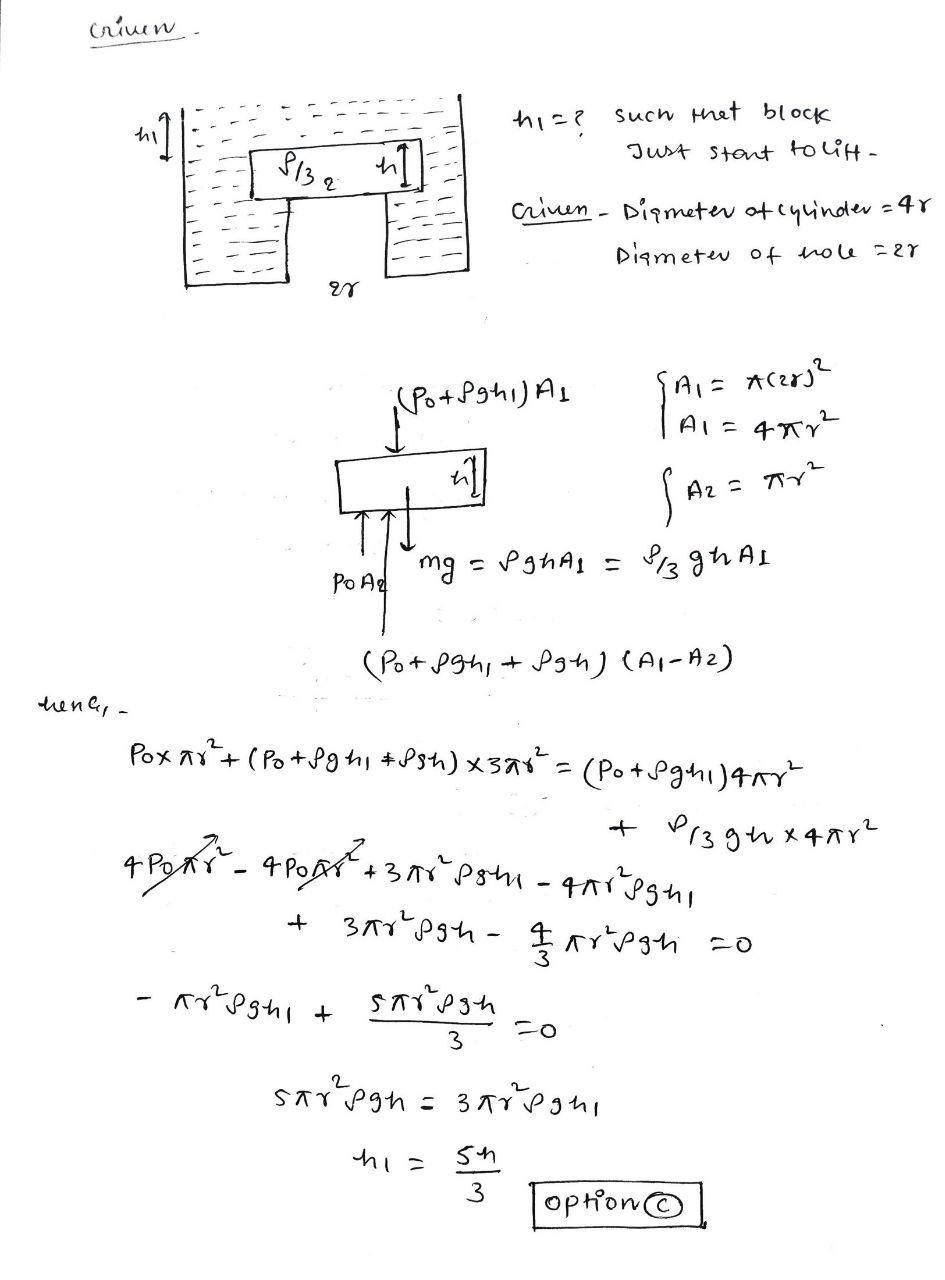 Given -
h1
ρ/3 2 h
2r
h1 = ? such that block
Just start to lift -
Given - Diameter of cylinder = 4r
Diameter of hole = 2r
(P0 + ρgh1) A1
{ A1 = π(2r)²
A1 = 4πr²
h
{ A2 = πr²
P0 A2
mg = ρghA1 = ρ/3 ghA1
(P0 + ρgh1 + ρgh) (A1 - A2)
hence, -
P0 × πr² + (P0 + ρgh1 + ρgh) × 3πr² = (P0 + ρgh1) 4πr²
+ ρ/3 gh × 4πr²
4P0πr² - 4P0πr² + 3πr²ρgh1 - 4πr²ρgh1
+ 3πr²ρgh - 4/3 πr²ρgh = 0
- πr²ρgh1 + 5πr²ρgh/3 = 0
5πr²ρgh = 3πr²ρgh1
h1 = 5h/3
option (C)